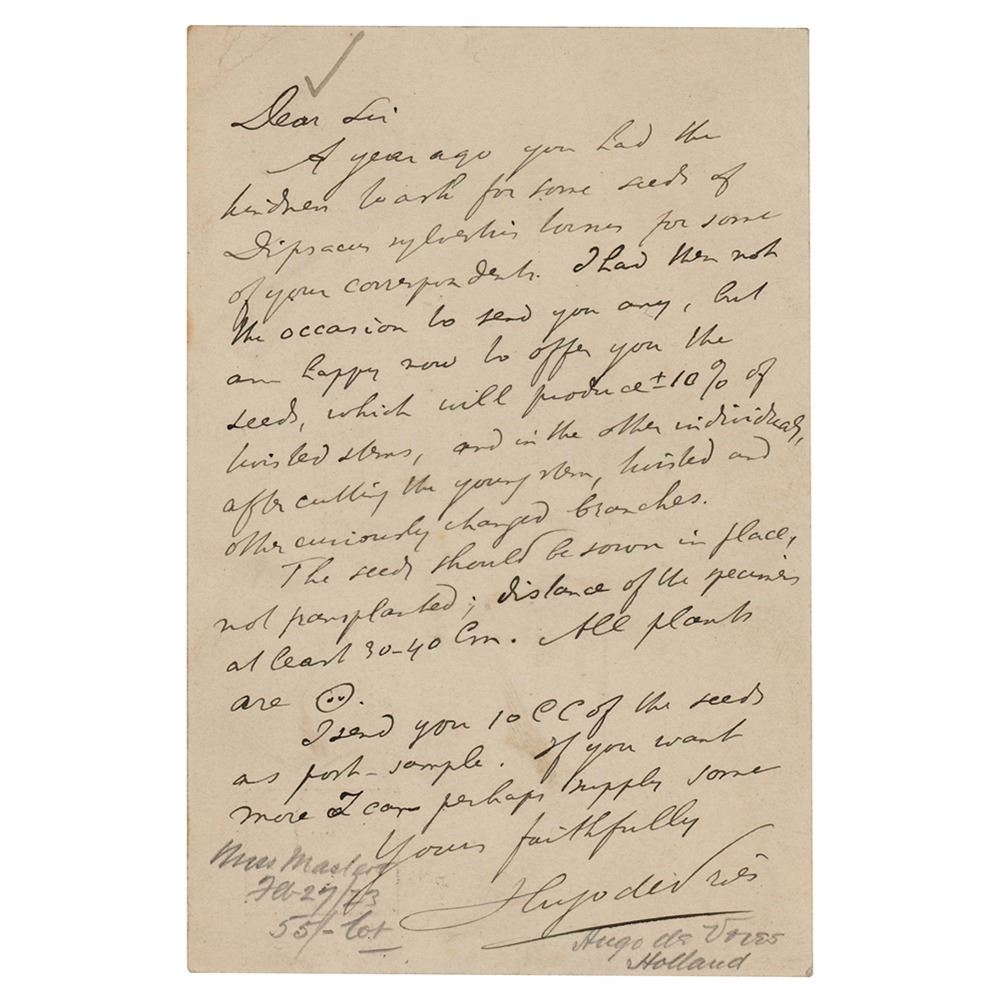 Dear Sir
A year ago you had the
kindness to ask for some seeds of
Dipsacus sylvestris torsus for some
of your correspondents. I had then not
the occasion to send you any, but
am happy now to offer you the
seeds, which will produce ± 10 % of
twisted stems, and in the other individuals,
after cutting the young stem, twisted and
other curiously changed branches.
The seeds should be sown in place,
not transplanted; distance of the specimens
at least 30-40 Cm. All plants
are ⊙.
I send you 10 CC of the seeds
as post-sample. If you want
more I can perhaps supply some
Yours faithfully
Hugo de Vries
Miss Masters
Feb 27/73
55/- lot
Hugo de Vries
Holland